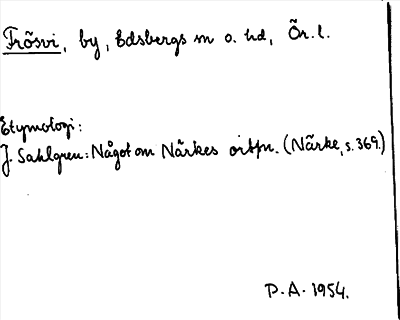 Frösvi, by, Edsbergs sn o. hd, Ör. l.
Etymologi:
J. Sahlgren: Något om Närkes ortsn. (Närke, s. 369.)
P. A. 1954.